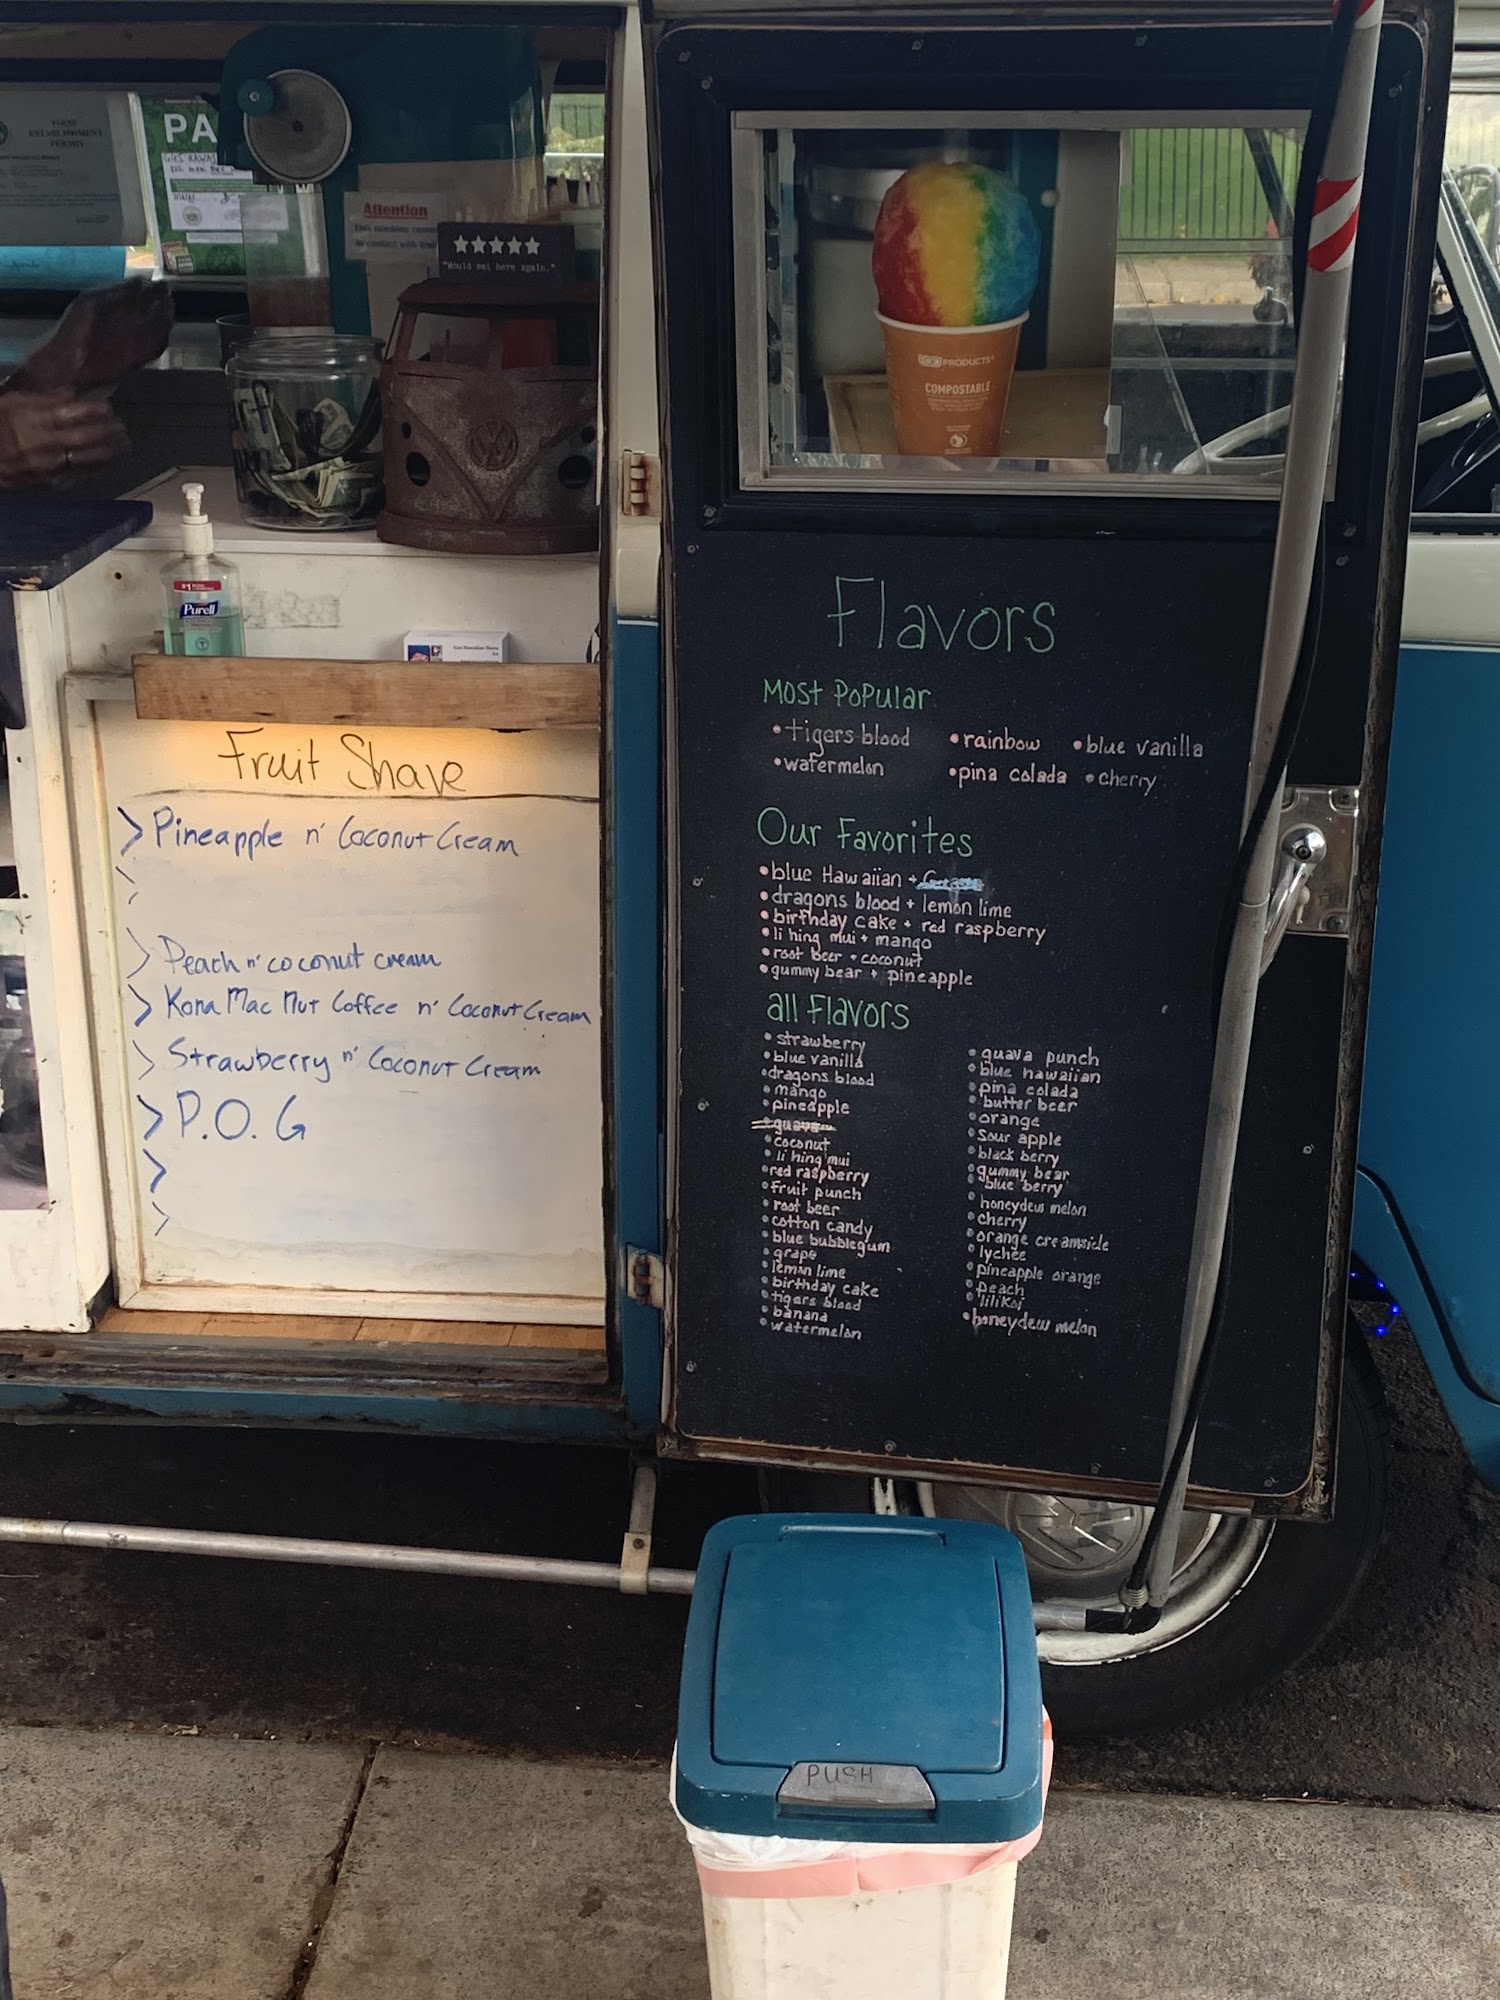 FOOD
ESTABLISHMENT
PERMIT
PA
GUS HAWAI
Attention
This machine comes
in contact with
★★★★★
"Would eat here again."
PRODUCTS
COMPOSTABLE
#1 BRAND
Purell
Gus Hawaiian Shave
Ice
Fruit Shave
> Pineapple n' Coconut Cream
>
> Peach n' coconut cream
> Kona Mac Nut Coffee n' Coconut Cream
> Strawberry n' Coconut Cream
> P.O.G
>
>
Flavors
Most Popular
• tigers blood • rainbow • blue vanilla
• watermelon • pina colada • cherry
Our Favorites
• blue Hawaiian +
• dragons blood + lemon lime
• birthday cake + red raspberry
• li hing mui + mango
• root beer + coconut
• gummy bear + pineapple
all Flavors
• strawberry
• blue vanilla
• dragons blood
• mango
• pineapple
• guava
• coconut
• li hing mui
• red raspberry
• fruit punch
• root beer
• cotton candy
• blue bubblegum
• grape
• lemon lime
• birthday cake
• tigers blood
• banana
• watermelon
• guava punch
• blue hawaiian
• pina colada
• butter beer
• orange
• sour apple
• black berry
• gummy bear
• blue berry
• honeydew melon
• cherry
• orange creamsicle
• lychee
• pineapple orange
• peach
• lilikoi
• honeydew melon
PUSH